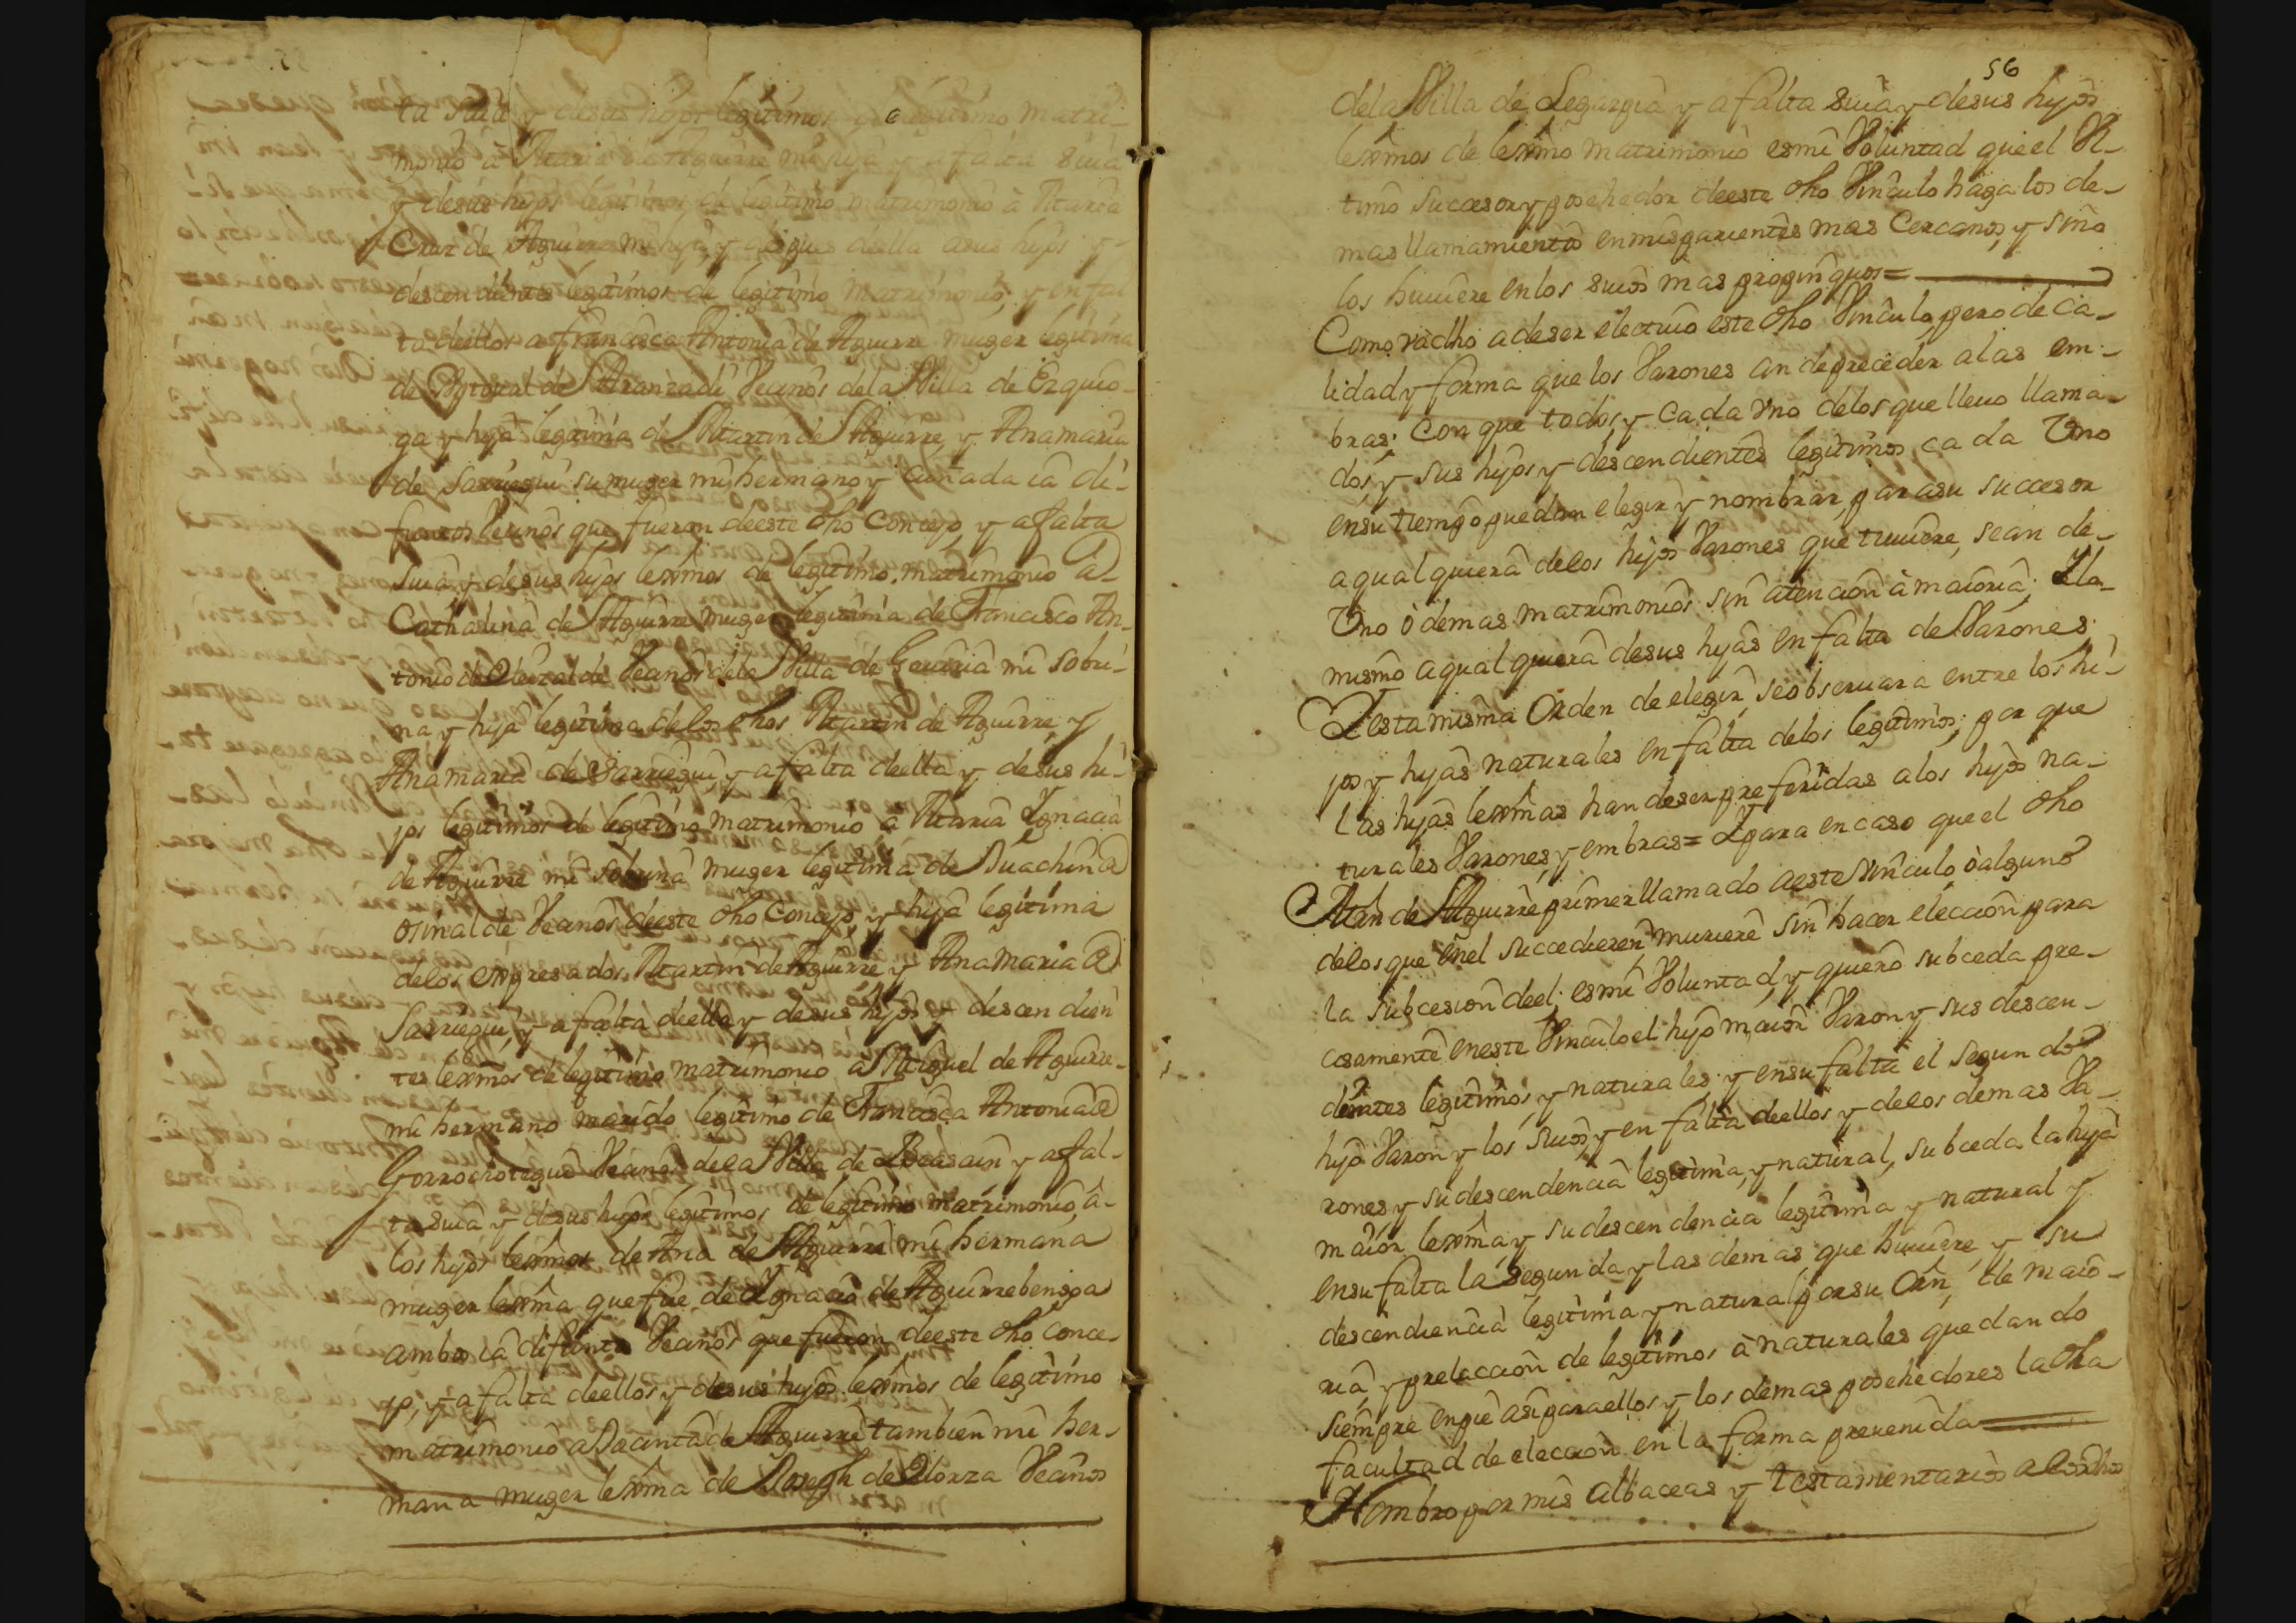 ta suia y desus hijos legitimos de legitimo matri-
monio a Maria de Aguirre mi hija y a falta suia
y desus hijos legitimos de legitimo matrimonio à Maria
Cruz de Aguirre mi hija, y despues deella asus hijos y
descendientes legitimos de legitimo matrimonio, y en fal
ta dellos a francisca Antonia de Aguirre muger legitima
de Xptoval de Aranzadi Vecinos dela Villa de Ezquio-
ga y hija legitima de Martin de Aguirre, y Anamaria
de Sarriegui su muger mi hermano y cuñada ia di-
funtos Vecinos que fueron deeste dho Concejo, y afalta
suia y desus hijos lexmos de legitimo matrimonio a
Cathalina de Aguirre muger legitima de Francisco An-
tonio de Olaizal de Vecinos dela Villa de Gauiria mi sobri-
na y hija legitima delos dhos Martin de Aguirre, y
Anamaria de Sarriegui, y afalta deella y desus hi-
jos legitimos de legitimo matrimonio à Maria Ygnacia
de Aguirre mi sobrina muger legitima de Juachin de
osinalde Vecinos deeste dho Concejo, y hija legitima
delos expresados Martin de Aguirre y Ana Maria de
Sarriegui, y afalta deella y desus hijos y descendien
tes lexmos delegitimo matrimonio à Miguel de Aguirre
mi hermano marido legitimo de Francisca Antonia de
Gorrochotegui Vecinos dela Villa de Beasain y afal-
ta suia y desus hijos legitimos de legitimo matrimonio, à-
los hijos lexmos de Ana de Aguirre mi hermana
muger lexma que fue de Ygnacio de Aguirrebengoa
ambos ia difuntos Vecinos que fueron deeste dho Conce-
jo, y afalta deellos y desus hijos lexmos de legitimo
matrimonio a Jacinta de Aguirre tambien mi her-
mana muger lexma de Joseph de Alorza Vecinos
56
dela Villa de Legazpia y afalta suia y desus hijos
lexmos de lexmo matrimonio es mi Voluntad que el Vl-
timo succesor y posehedor deeste dho Vinculo haga los de-
mas llamamientos en mis parientes mas Cercanos, y sino
los huuiere en los suios mas propinquos=
Como va dho a de ser electiuo este dho Vinculo, pero de ca-
lidad y forma que los Varones an de preceder alas em-
bras; Con que todos, y Cada vno delos que lleuo llama-
dos, y sus hijos y descendientes legitimos, cada Vno
ensu tiempo puedan elegir y nombrar, para su succesor
aqualquiera delos hijos Varones que tuuiere, sean de
Vno ò demas matrimonios sin atencion à maioria, Y lo
mismo aqualquiera desus hijas en falta de Varones
Y esta misma Orden de elegir, se obseruara entre los hi-
jos y hijas naturales en falta delos legitimos; por que
las hijas lexmas han deser preferidas a los hijos na-
turales Varones, y embras= Y para encaso que el dho
Mrn de Aguirre primer llamado aeste Vinculo, ò alguno
delos que enel succedieren muriere sin hacer eleccion para
la subcesion deel: es mi Voluntad, y quiero subceda pre-
cisamente eneste Vinculo el hijo maior Varon y sus descen-
dientes legitimos, y naturales y ensu falta el segundo
hijo Varon y los suios, y en falta deellos y delos demas Va-
rones y su descendencia legitima, y natural, subceda la hija
maior, lexma y su descendencia legitima y natural y
ensu falta la segunda y las demas que huuiere, y su
descendiencia legitima y natural por su Orn, de maio-
ria, y prelaccion de legitimos à naturales quedando
siempre enpie asi para ellos y los demas posehedores la dha
facultad de eleccion en la forma preuenida
Nombro por mis albaceas y testamentarios a los dhos